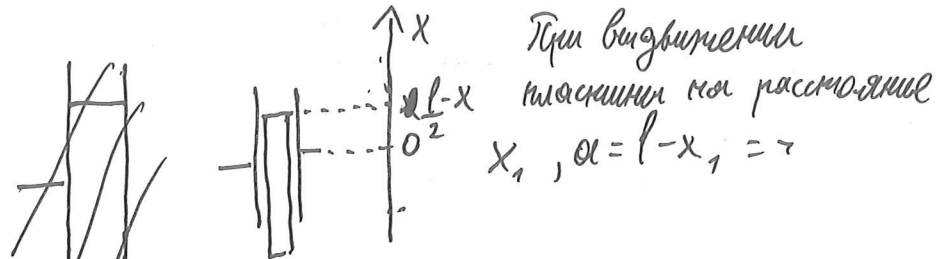 x
При выдвижении
l/2-x
пластины на расстояние
0
x₁, a = l-x₁ = >